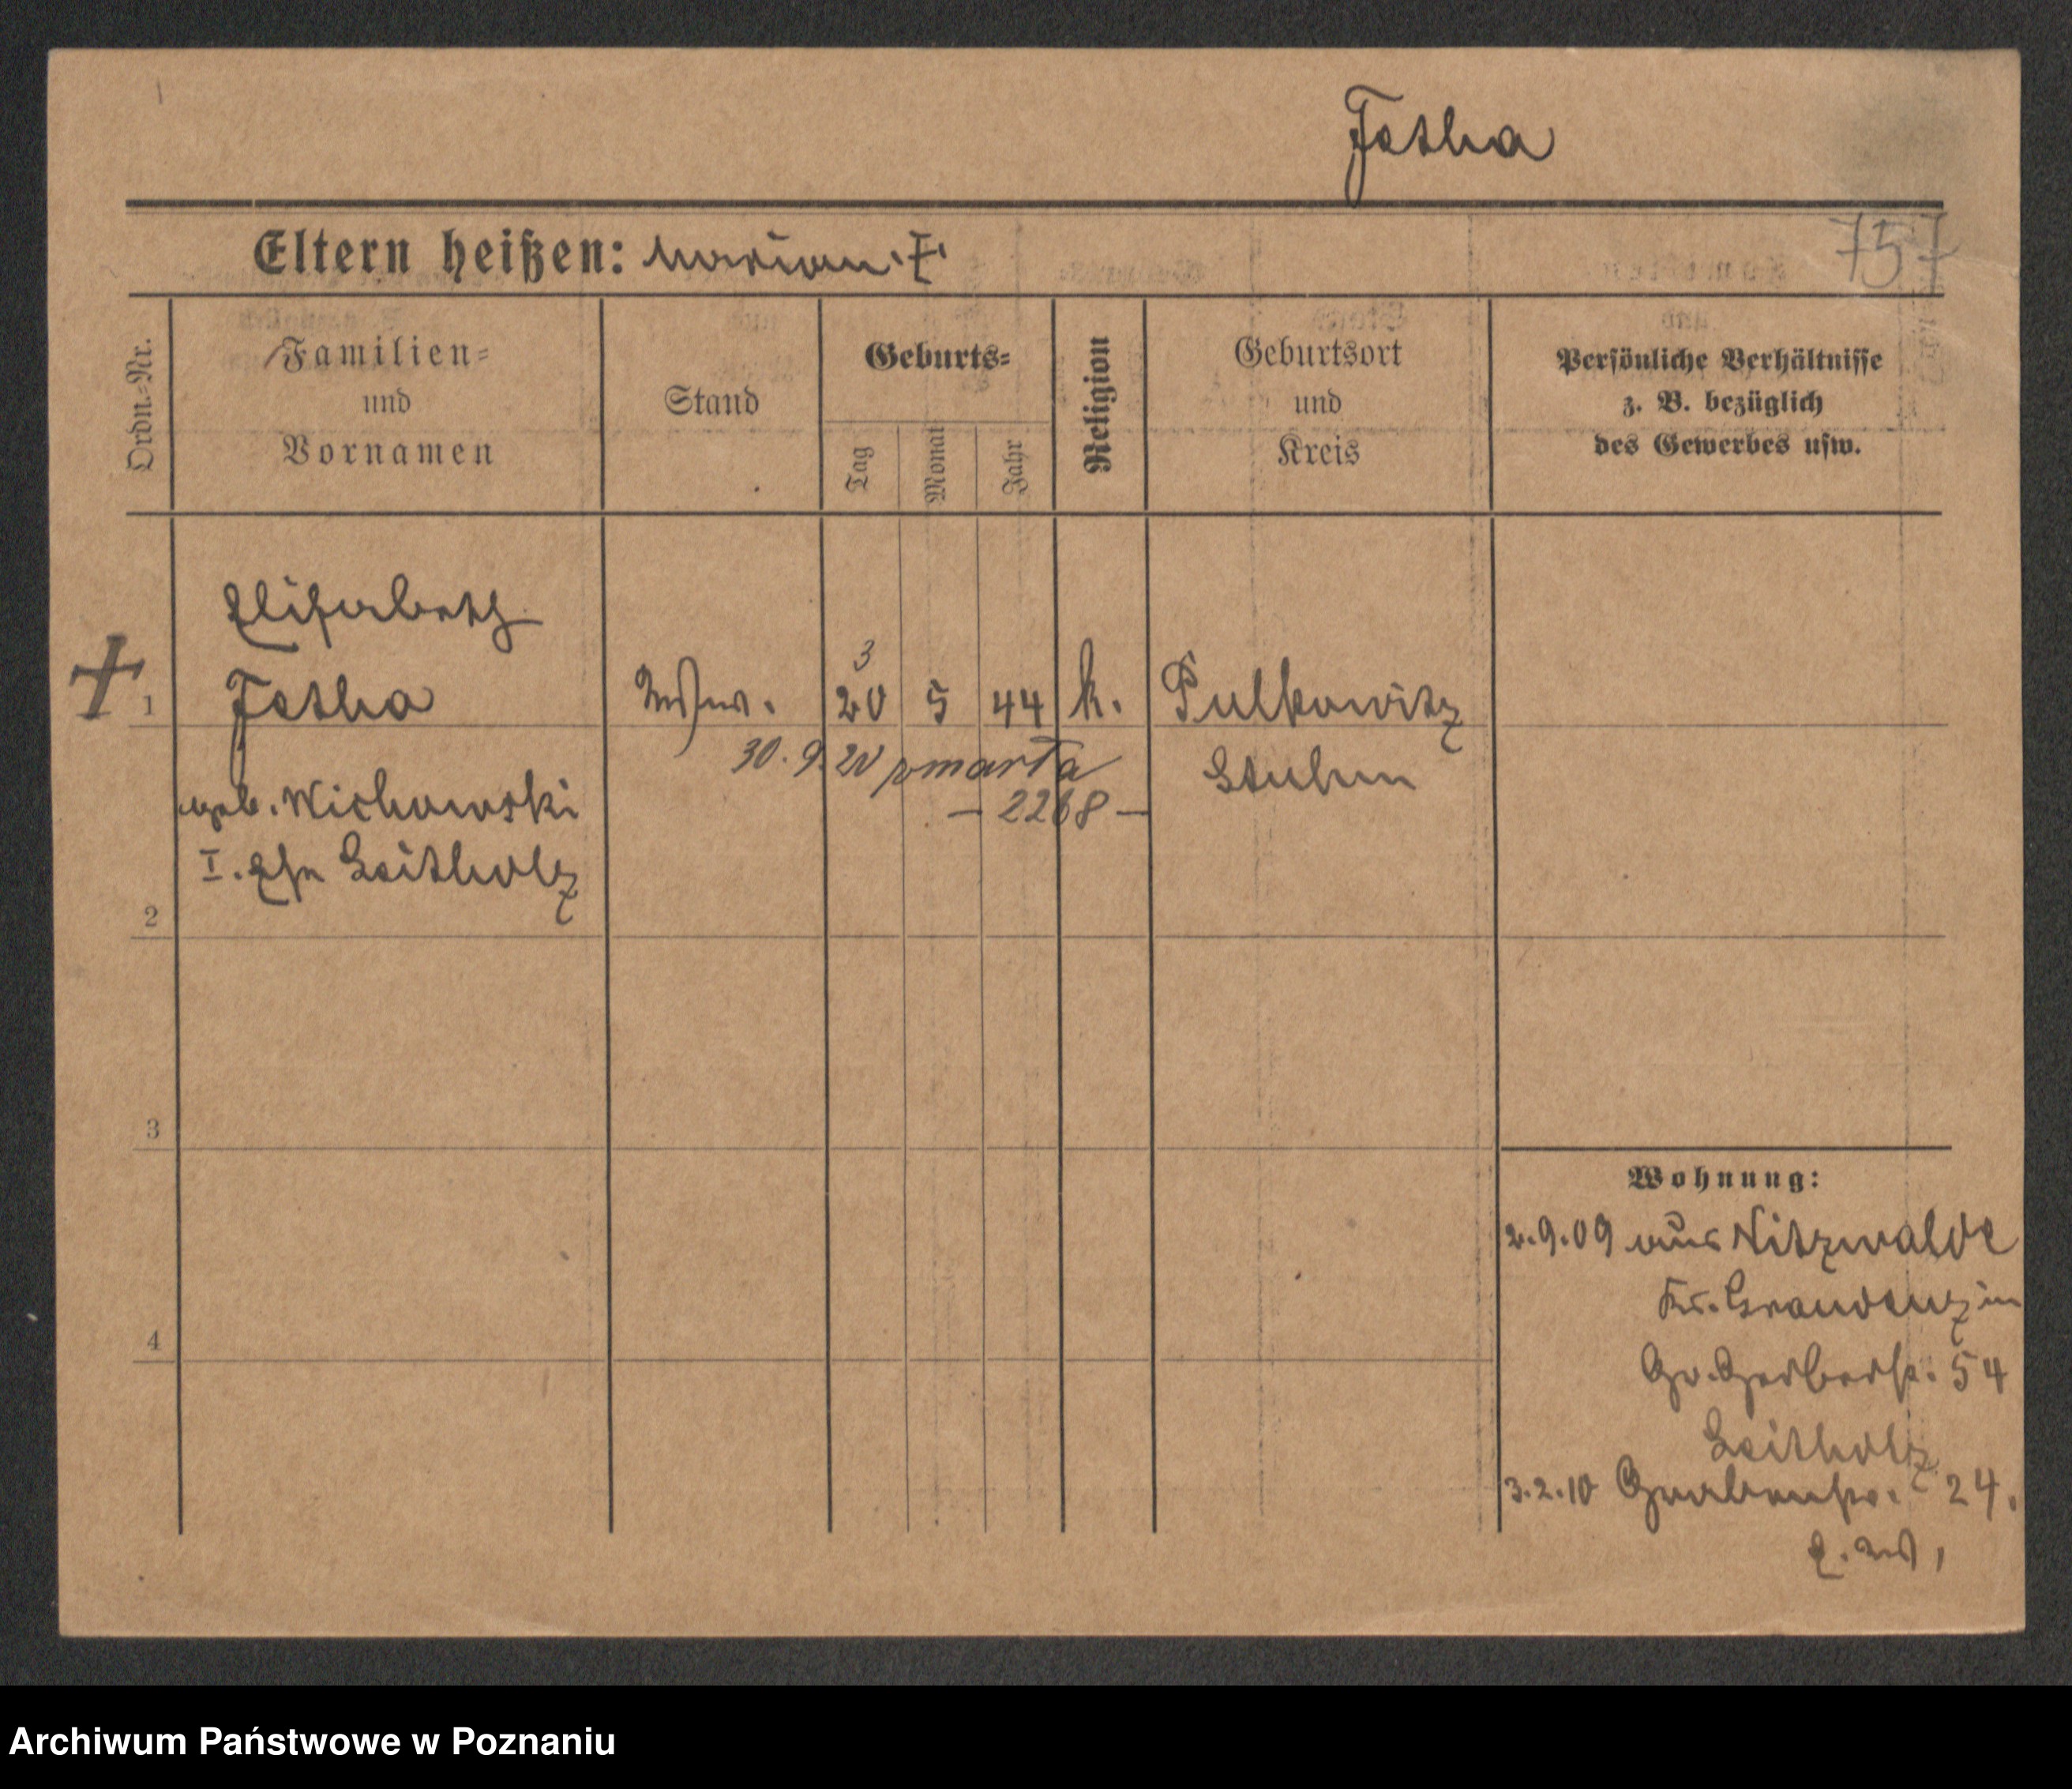 Jeska
Eltern heißen: Marian. F.
757
Ordn.-Nr.
Familien-
und
Vornamen
Stand
Geburts-
Tag
Monat
Jahr
Religion
Geburtsort
und
Kreis
Persönliche Verhältnisse
z. B. bezüglich
des Gewerbes usw.
Elisabeth
3
1
Wwe.
20 5 44 k. Pulkowitz
30.9.20 zmarła
Stuhm
geb. Wichowski
- 2268 -
I. Ehe Leitholz
2
3
4
Wohnung:
2.9.09 aus Nitzwalde
Kr. Graudenz in
Gr. Gerberstr. 54
Leitholz
3.2.10 Grabenstr. 24.